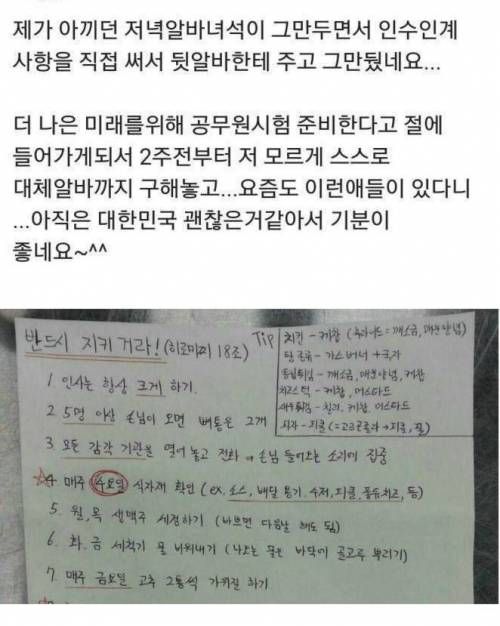 제가 아끼던 저녁알바녀석이 그만두면서 인수인계
사항을 직접 써서 뒷알바한테 주고 그만뒀네요...
더 나은 미래를위해 공무원시험 준비한다고 절에
들어가게되서 2주전부터 저 모르게 스스로
대체알바까지 구해놓고...요즘도 이런애들이 있다니
...아직은 대한민국 괜찮은거같아서 기분이
좋네요~^^
반드시 지키거라! (히로마찌 18조)
Tip
치킨 - 케찹 (후라이드 = 깨소금, 매운양념)
탕 종류 - 가스버너 + 국자
치즈스틱 - 케찹, 머스타드
새우튀김 - 칠리, 케찹, 머스타드
1. 인사는 항상 크게 하기.
2. 5명 이상 손님이 오면 빼통은 2개
3. 모든 감각 기관을 열어 놓고 전화 → 손님 들어오는 소리에 집중
☆4. 매주 수요일 식자재 확인 (ex. 소스, 배달 용기, 수저, 피클, 등)
5. 월, 목 생맥주 세정하기 (바쁘면 다음날 해도 됨)
6. 화, 금 세척기 물 비워내기 (나오는 물은 바닥에 골고루 뿌리기)
7. 매주 금요일 고추 2통씩 가위질 하기